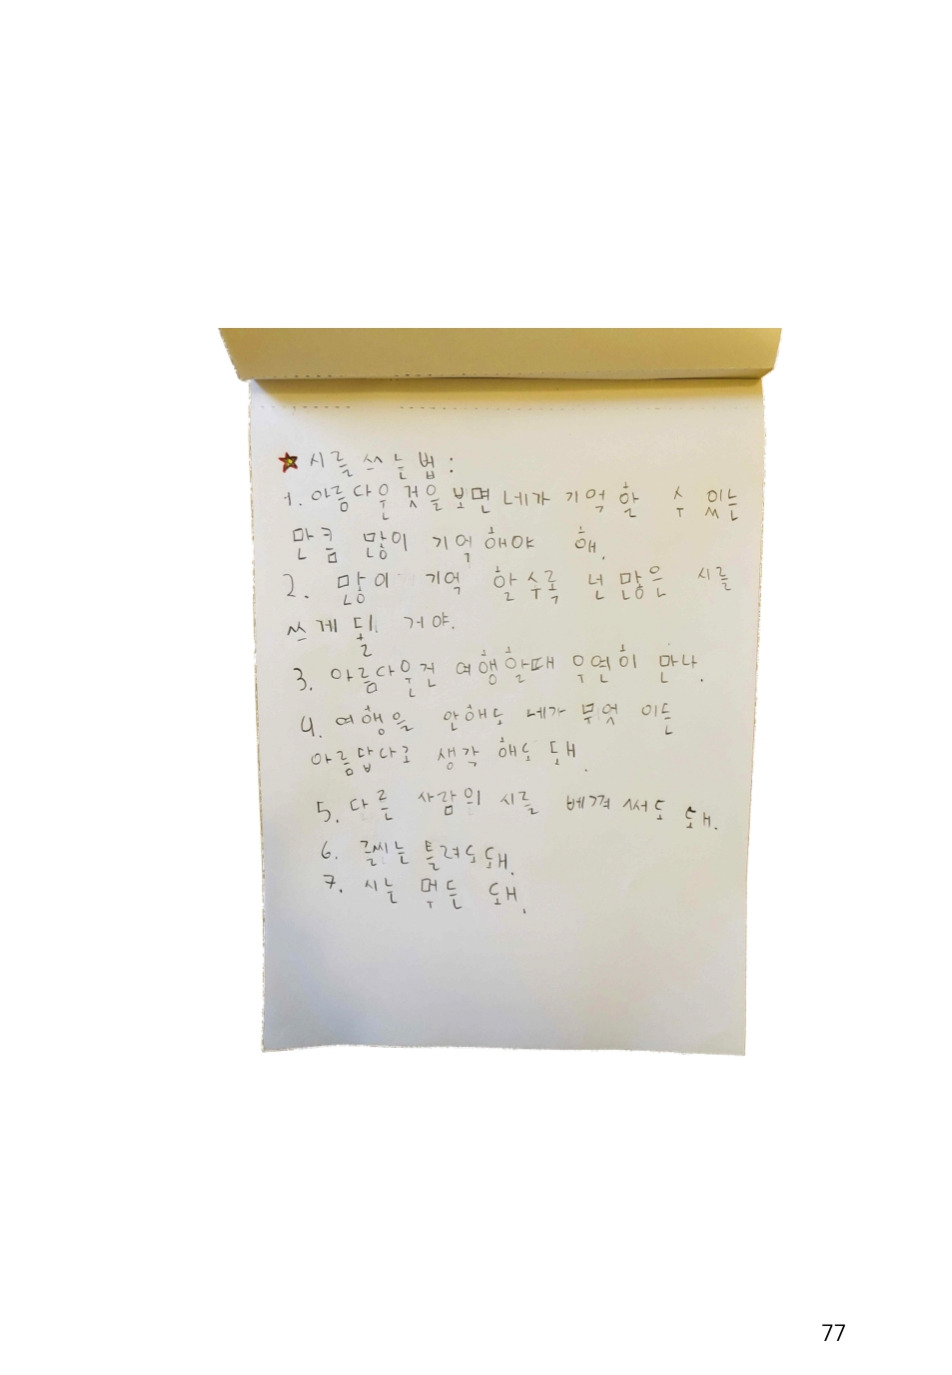 ★시를 쓰는 법:
1. 아름다운 것을 보면 네가 기억 할 수 있는
만큼 많이 기억해야 해.
2. 많이 기억 할수록 넌 많은 시를
쓰게 될 거야.
3. 아름다운건 여행할때 우연히 만나.
4. 여행을 안해도 네가 무엇 이든
아름답다고 생각 해도 돼.
5. 다른 사람의 시를 베껴 써도 돼.
6. 글씨는 틀려도 돼.
7. 시는 머든 돼.
77